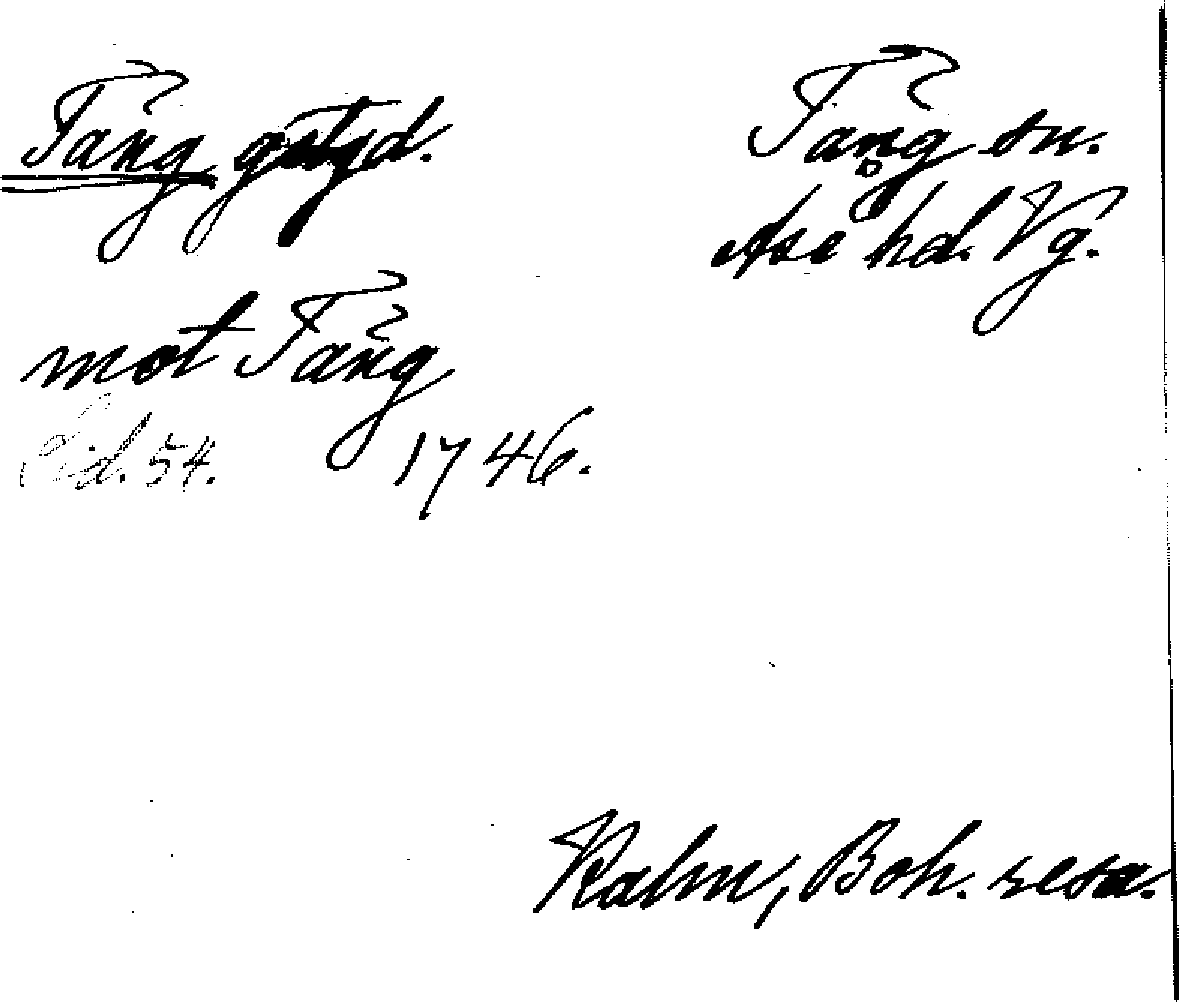 Tång gstgd.
Tång sn.
Åse hd. Vg.
mot Tång
Sid. 54. 1746.
Kalm, Boh. resa.